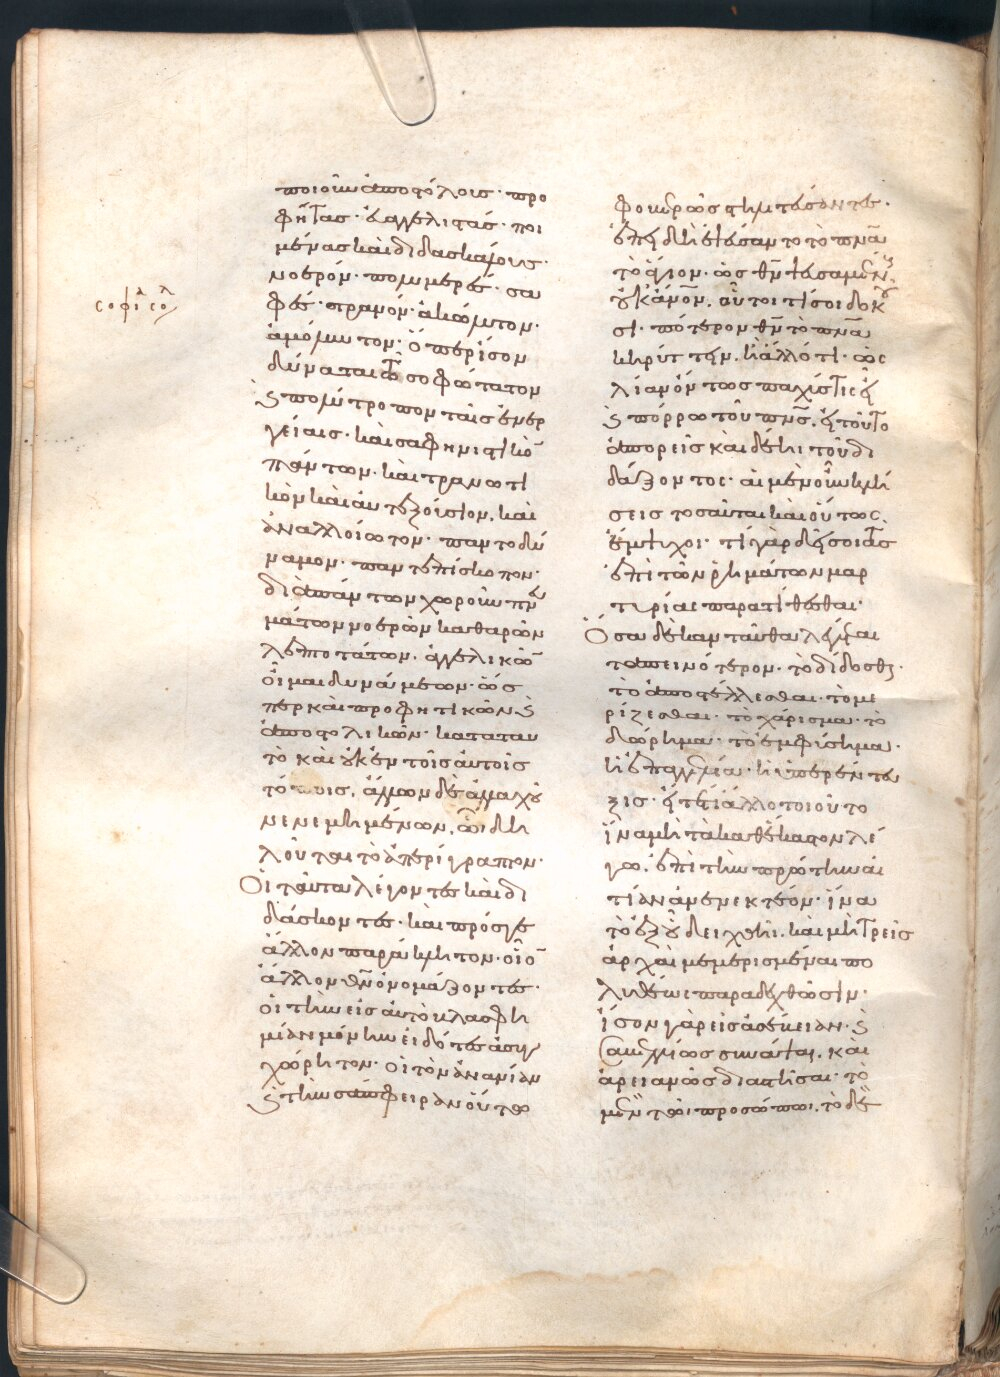 ποιοῦν ἀποστόλους· προ
φήτας· εὐαγγελιστάς· ποι
μένας καὶ διδασκάλους·
νοερόν· πολυμερές· σα
φές· τρανόν· ἀκώλυτον·
ἀμόλυντον· ὅπερ ἴσον
δύναται τῶ σοφώτατον
ϗ πολύτροπον ταῖς ἐνερ
γείαις· καὶ σαφηνιστικὸ̅
πάντων· καὶ τρανωτι
κόν καὶ αὐτεξούσιον· καὶ
ἀναλλοίωτον· παντοδύ
ναμον· παντεπίσκοπον·
διὰ πάντων χωροῦν πνευ
μάτων νοερῶν καθαρῶν
λεπτοτάτων· ἀγγελικῶ̅
οἶμαι δυνάμεων· ὥς
περ καὶ προφητικῶν ϗ
ἀποστολικῶν· κατα ταυ
τὸ καὶ οὐκ ἐν τοῖς αὐτοῖς
τόποις, ἄλλων δὲ ἀλλαχοῦ
νενεμημένων, ὧι δη
λοῦται τὸ ἀπερίγραπτον·
Οἱ ταῦτα λέγοντες καὶ δι
δάσκοντες· καὶ πρόσγε
ἄλλον παράκλητον· οἷο̅
ἄλλον θν̅ ὀνομάζοντες·
οἱ τὴν εἰς αὐτὸ βλασφη
μίαν μόνην εἰδότες ἀσυγ
χώρητον· οἱ τὸν ἀνανίαν
ϗ τὴν σάπφειραν οὕτω
φοβερῶς στηλιτεύσαντες·
ἐπειδὴ ἐψεύσαντο τὸ πνα̅
τὸ ἅγιον· ὡς θν̅ ψευσαμένους
οὐκ ἄνον̅. οὗτοι τί σοι δοκοῦ
σι· πότερον θν̅ τὸ πνα̅
κηρύττειν. ἢ ἄλλό τι· ὡς
λίαν ὄντως παχύς τις εἶ
ϗ πόρρω τοῦ πνς̅. εἰ τοῦτο
ἀπορεῖς καὶ δέηι τοῦ δι
δάξοντος· αἱ μὲν οὖν κλή
σεις τοσαῦται καὶ οὕτως
ἔμψυχοι· τί γὰρ δεῖ σοι τὰς
ἐπὶ τῶν ῥημάτων μαρ
τυρίας παρατίθεσθαι·
Ὅσα δὲ κἀνταῦθα λέγεται
ταπεινότερον· τὸ δίδοσθαι·
τὸ ἀποστέλλεσθαι· τὸ με
ρίζεσθαι· τὸ χάρισμα· τὸ
δώρημα· τὸ ἐμφύσημα·
ἡ ἐπαγγελία· ἡ ὑπερέντευ
ξις· εἴτε τί ἄλλο τοιοῦτο
ἵνα μὴ τὰ καθέκαστον λέ
γω. ἐπὶ τὴν πρώτην αἰ
τίαν ἀνενεκτέον· ἵνα
τὸ ἐξ οὗ δειχθῆι. καὶ μὴ τρεῖς
ἀρχαὶ μεμερισμέναι πο
λυθέως παραδεχθῶσιν·
ἴσον γὰρ εἰς ἀσέβειαν· ϗ
σαβελλίως συνάψαι. καὶ
ἀρειανῶς διαστῆσαι· τὸ
μὲν τῶι προσώπωι. τὸ δὲ